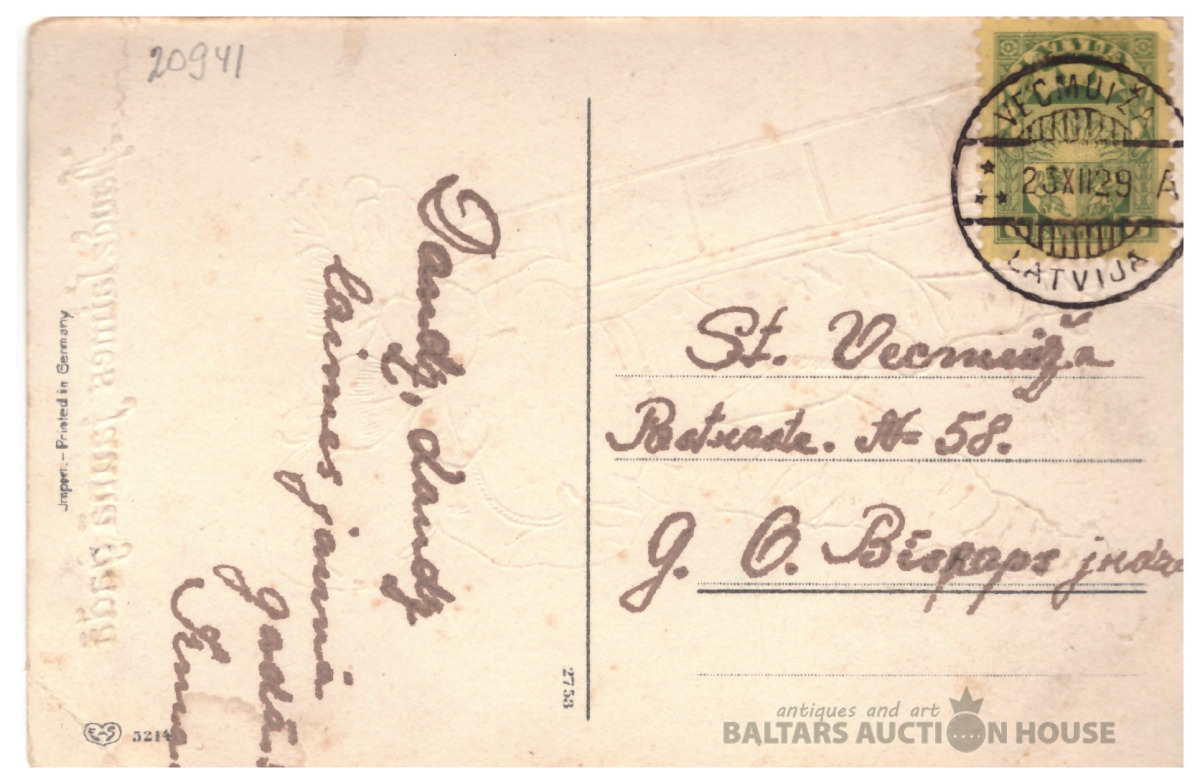 20941
LATVIJA
VECMUIŽA
23XII29 A
LATVIJA
Daudz, daudz
laimes jaunā
gadā.
St. Vecmuiža
Pastkaste. N= 58.
G. O.
Import. – Printed in Germany
Daudz laimes Jaunā gadā
EAS
5214
2753
antiques and art
BALTARS AUCTION HOUSE